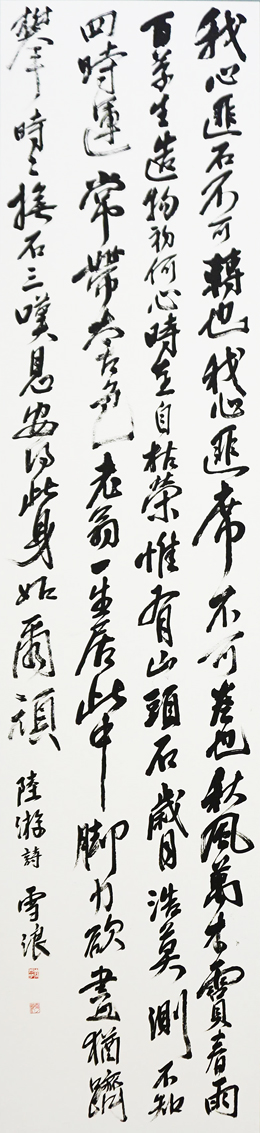 我心匪石不可轉也我心匪席不可卷也秋風萬木霣春雨
百草生造物初何心時至自枯榮惟有山頭石歲月浩莫測不知
四時運常帶太古色老翁一生居此中脚力欲盡猶躋
攀時々撫石三嘆息安得此身如爾頑
陸游詩 雪浪